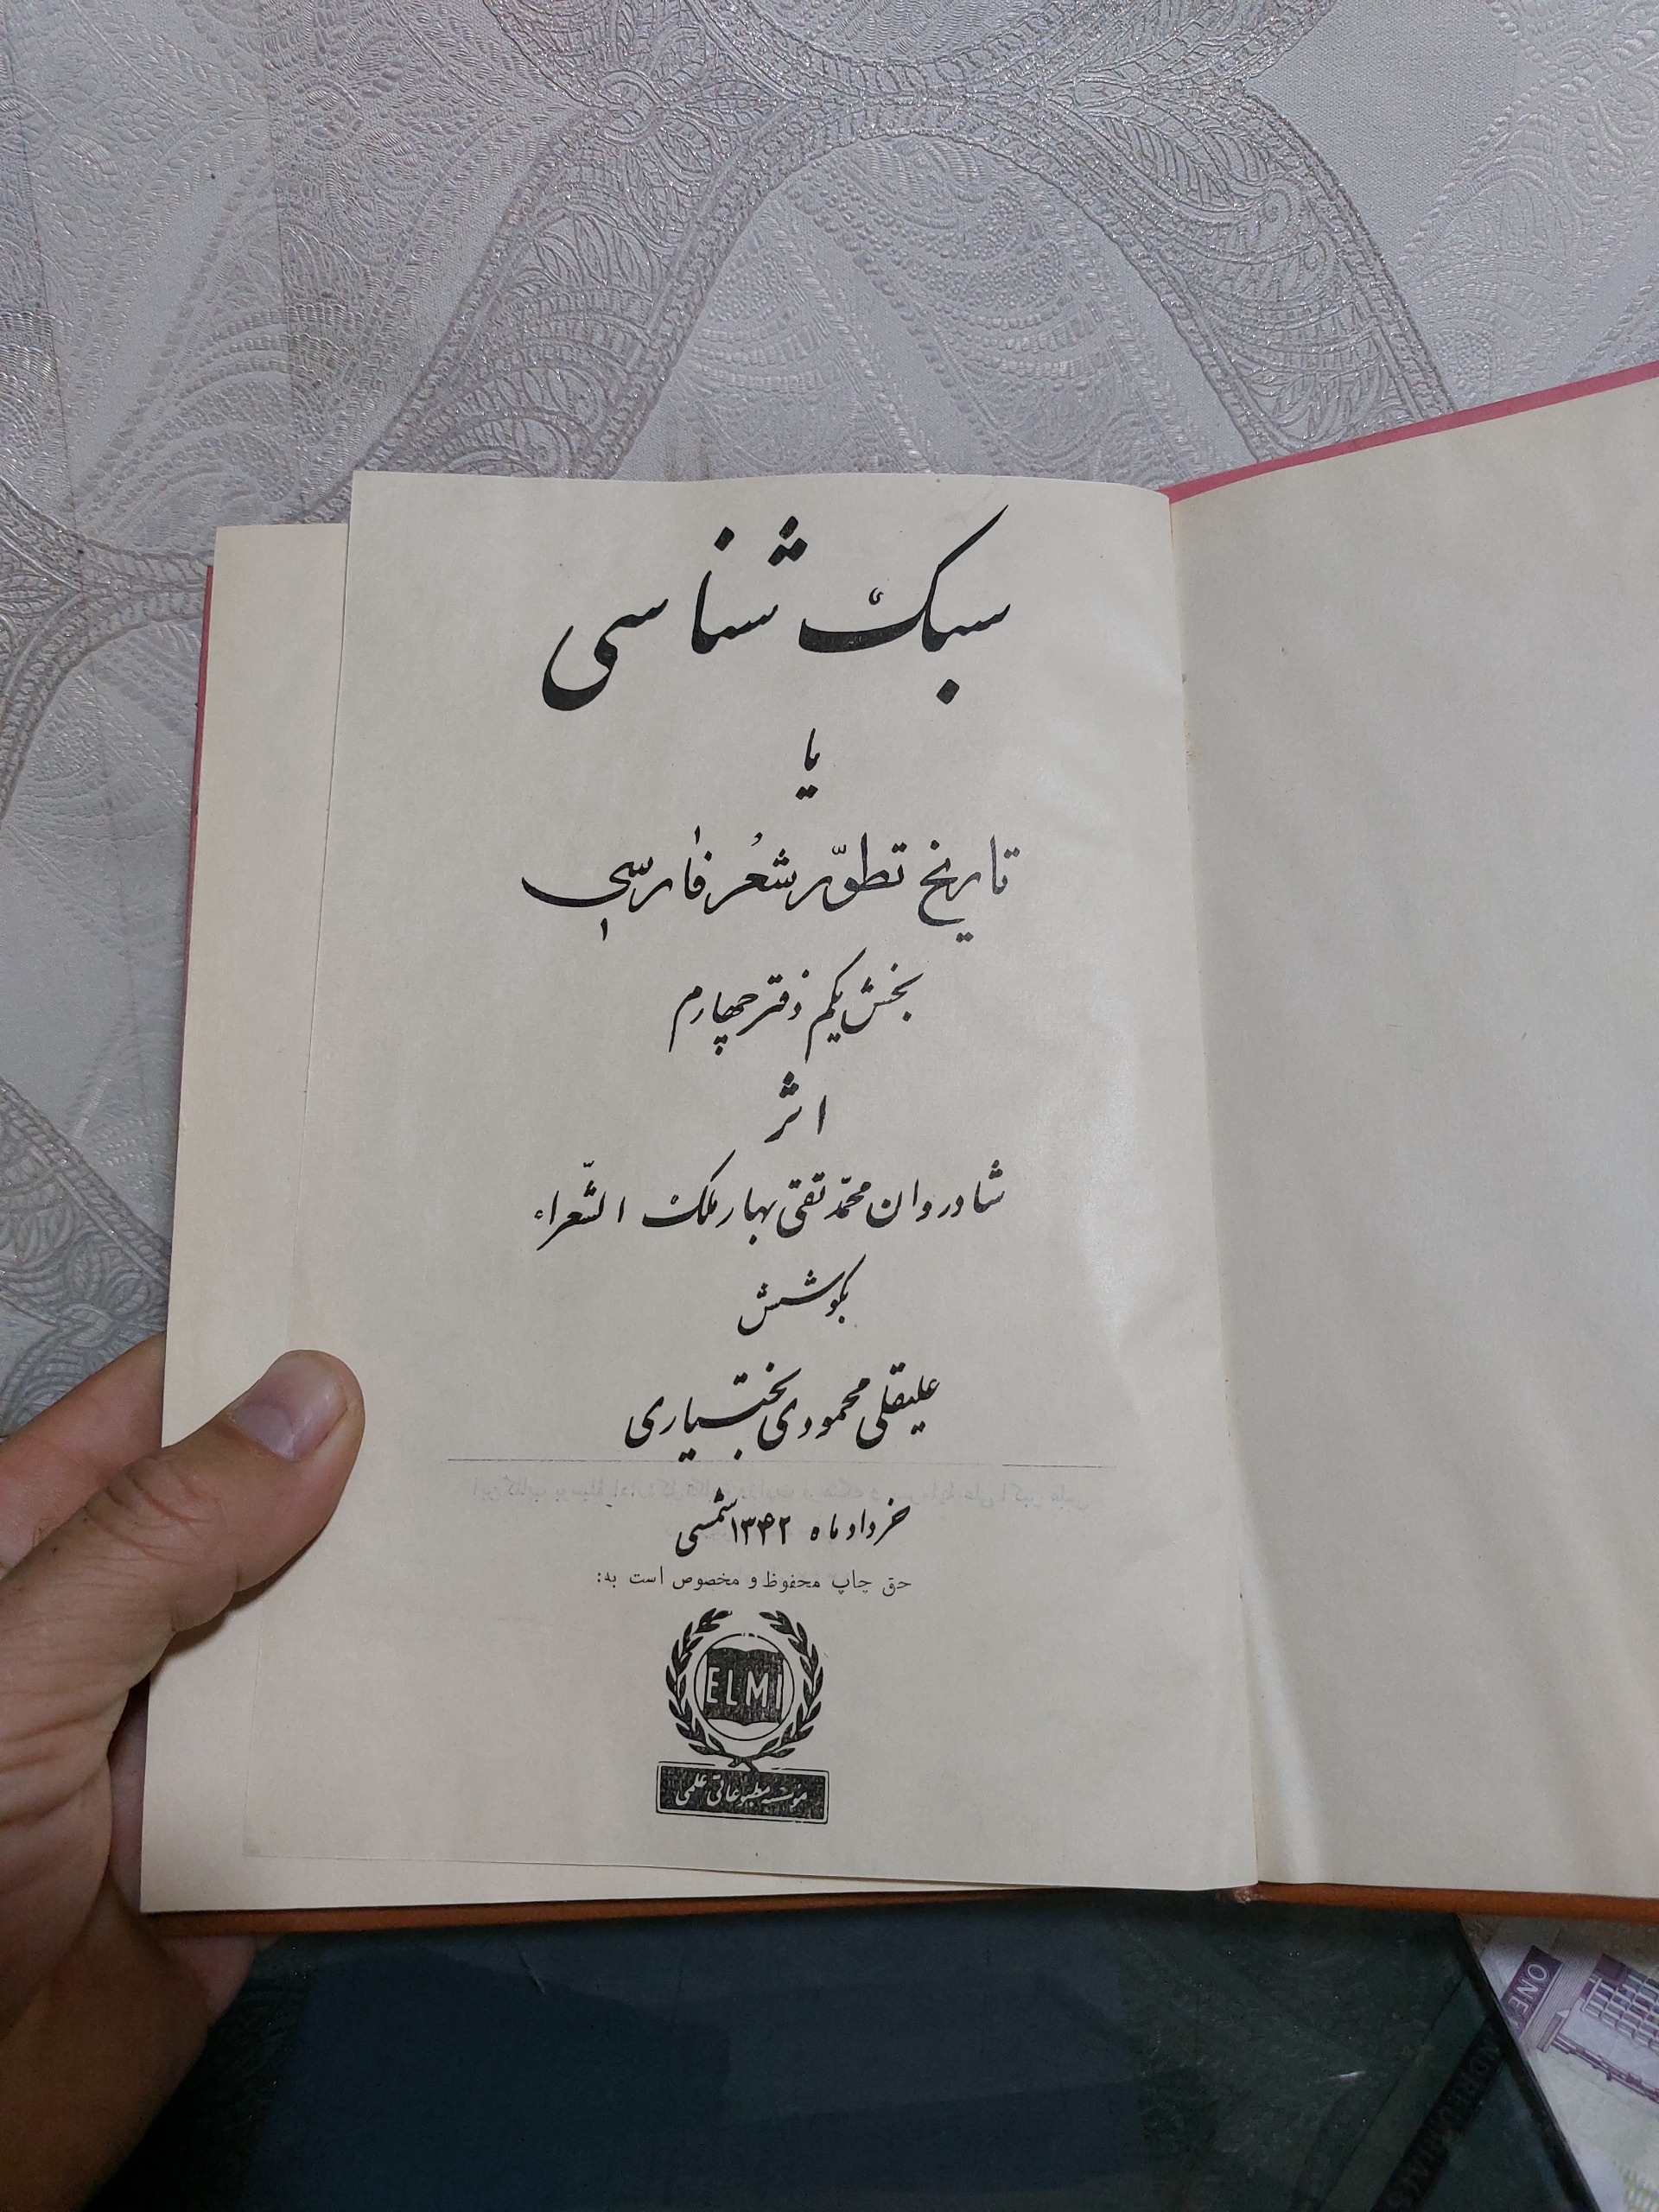 سبک شناسی
یا
تاریخ تطوّر شعر فارسی
بخش یکم دفتر چهارم
اثر
شادروان محمّد تقی بهار ملک الشّعراء
بکوشش
علیقلی محمودی بختیاری
خرداد ماه ۱۳۴۲ شمسی
حق چاپ محفوظ و مخصوص است به:
ELMI
مؤسسه مطبوعاتی علمی
ONE